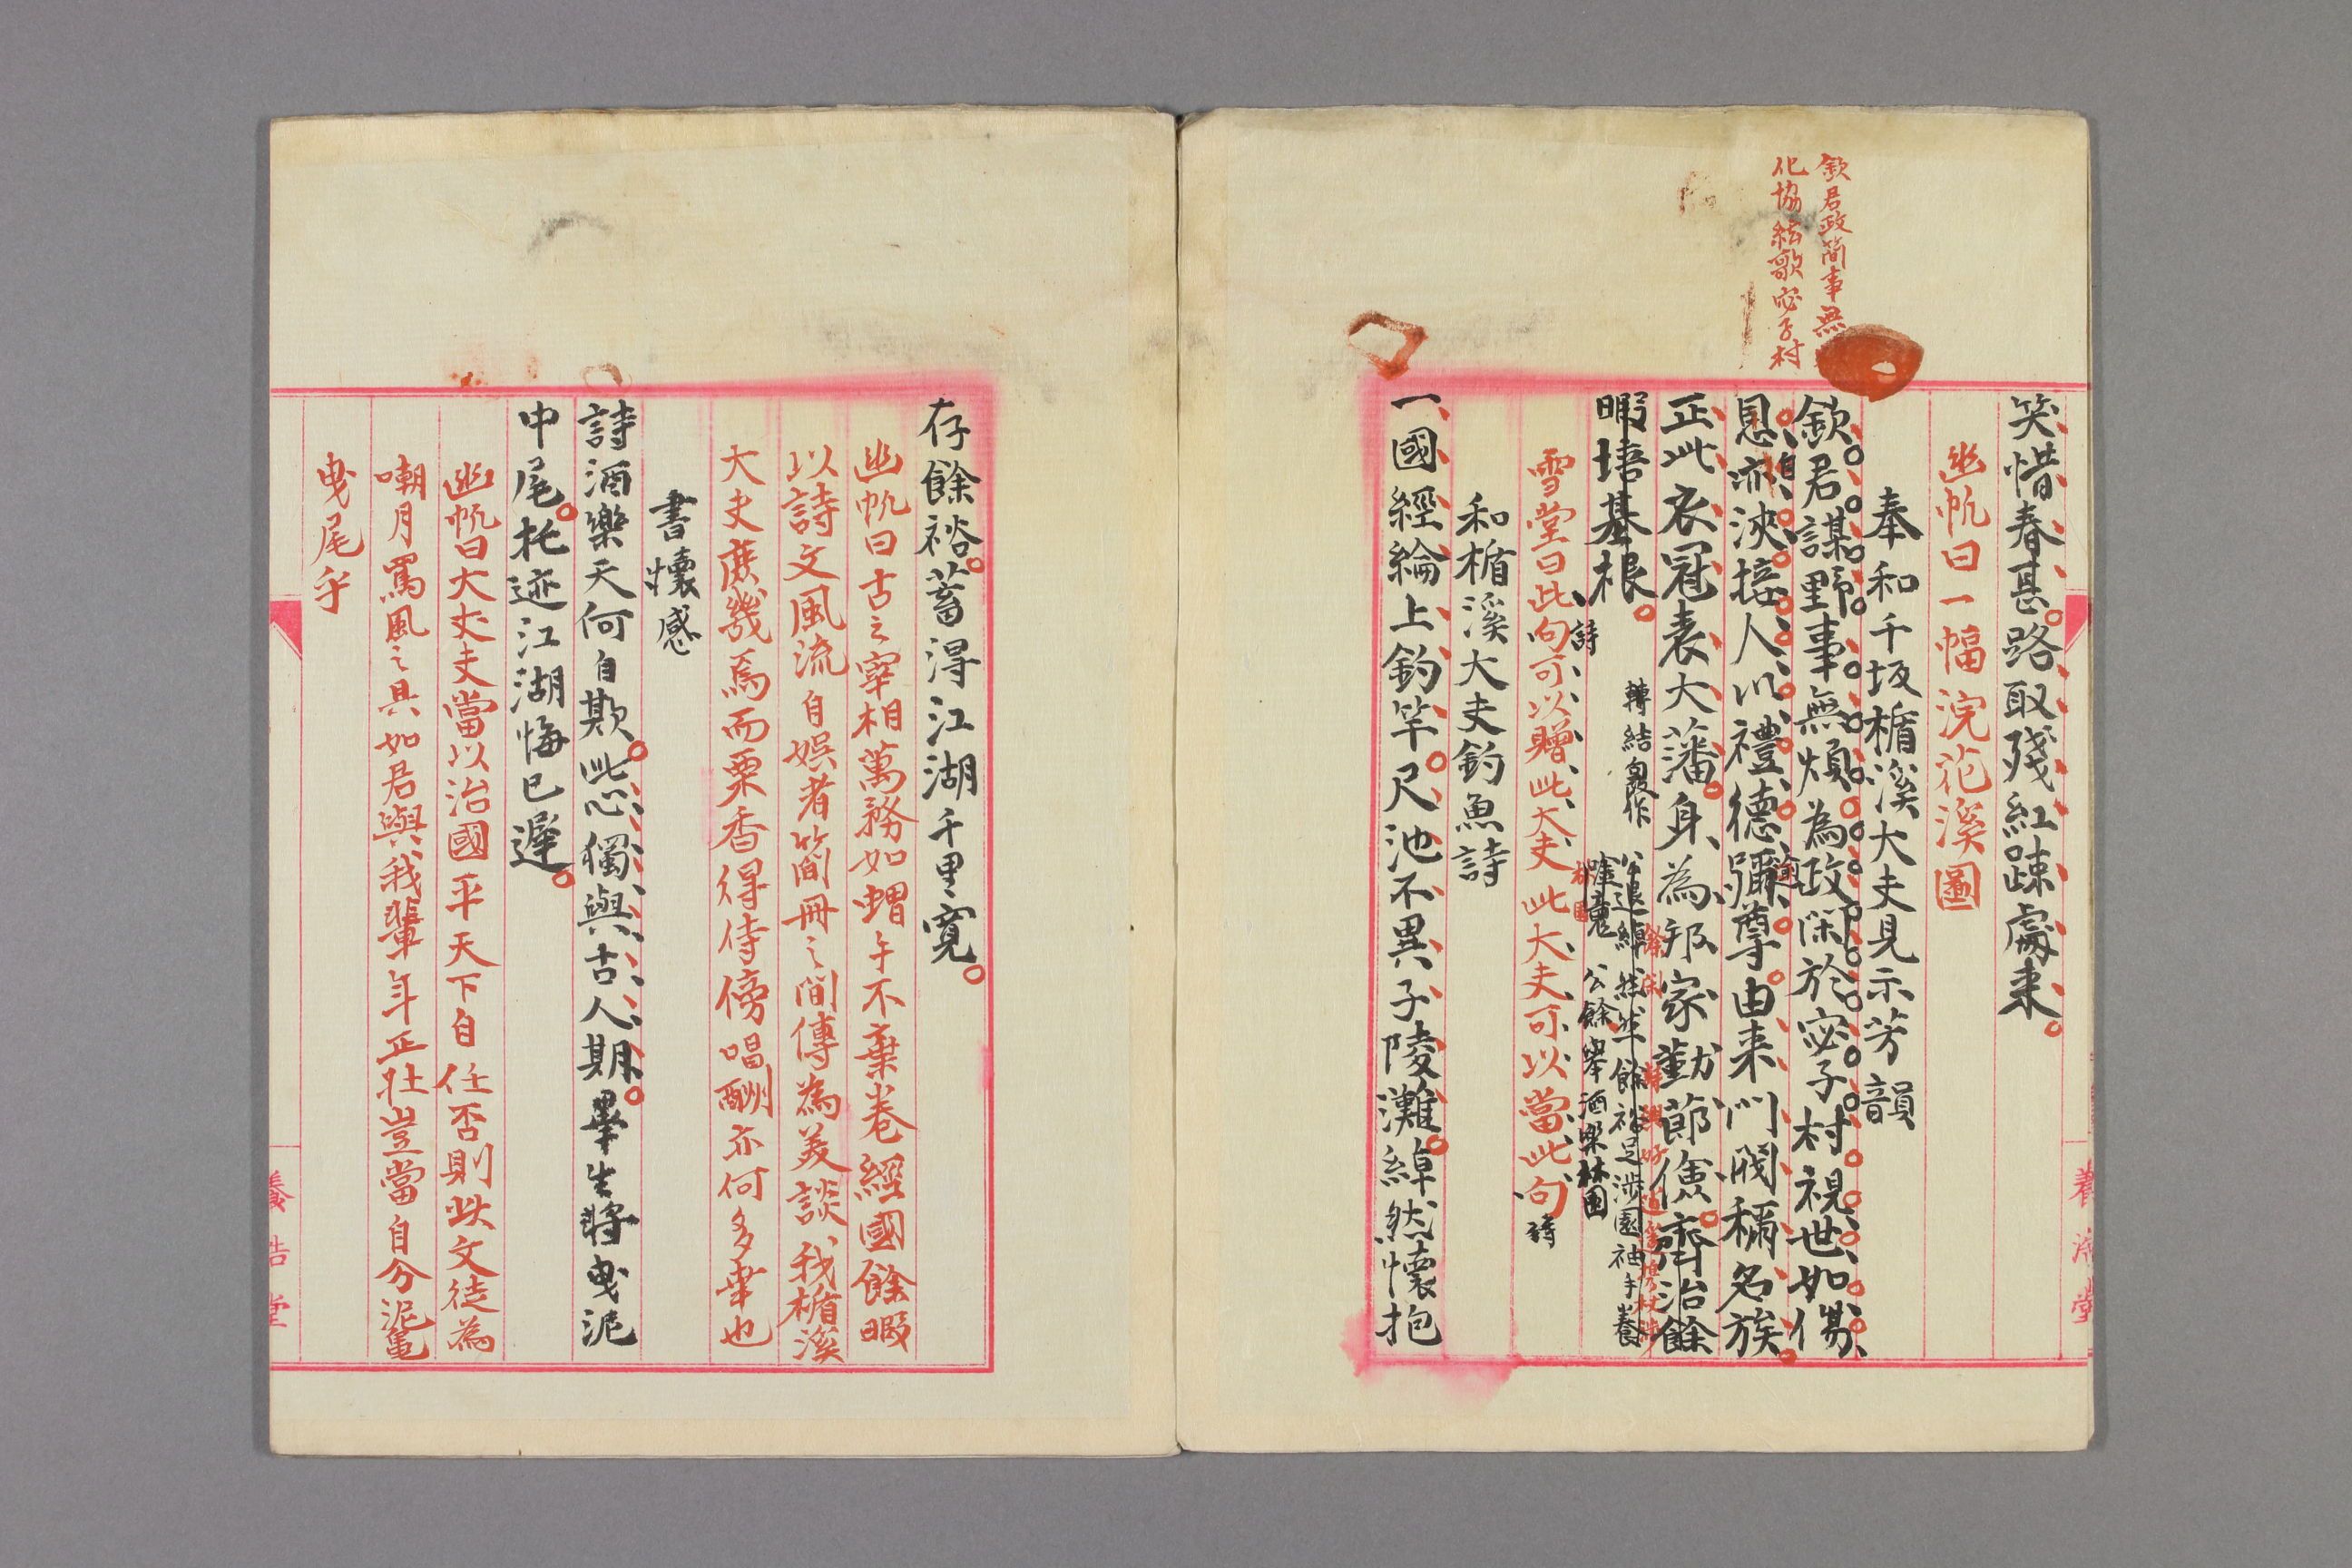 欽君政簡事無
化協絃歌宓子村
笑惜春甚路取殘紅疎處来
幽帆曰一幅浣花溪圖
奉和千坂楯溪大夫見示芳韻
欽君謀野事無煩為政閑於宓子村視世如傷
恩亦浹接人以禮德彌尊由来門閥稱名族
正此衣冠表大藩身為邦家勤節儉齊治餘
暇培基根
轉結良作
公餘舉酒樂林園
雪堂曰此句可以贈此大夫此大夫可以當此句
詩
詩
和楯溪大夫釣魚詩
一國經綸上釣竿尺池不異子陵灘綽然懷抱
養浩堂
存餘裕蓄得江湖千里寬
幽帆曰古之宰相萬務如蝟午不棄巻經國餘暇
以詩文風流自娯者簡冊之間傳為美談我楯溪
大夫庶幾焉而栗香得侍傍唱酬亦何多幸也
書懷感
詩酒樂天何自欺此心獨與古人期畢生將曳泥
中尾托迹江湖悔已遲
幽帆曰大丈夫當以治國平天下自任否則此文徒為
嘲月罵風之具如君與我輩年正壯豈當自分泥龜
曳尾乎
養浩堂